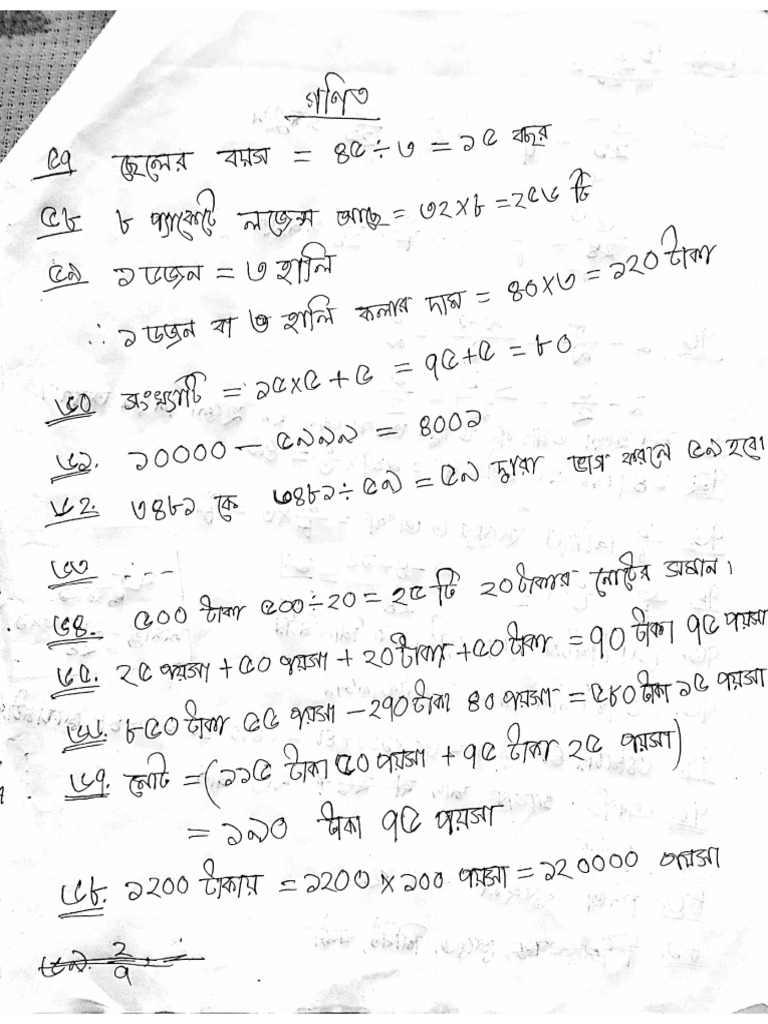 গণিত
৫৭ ছেলের বয়স = ৪৫ ÷ ৩ = ১৫ বছর
৫৮ ৮ প্যাকেটে লজেন্স আছে = ৩২ × ৮ = ২৫৬ টি
৫৯ ১ ডজন = ৩ হালি
∴ ১ ডজন বা ৩ হালি কলার দাম = ৪০ × ৩ = ১২০ টাকা
৬০ সংখ্যাটি = ১৫ × ৫ + ৫ = ৭৫ + ৫ = ৮০
৬১. ১০০০০ − ৫৯৯৯ = ৪০০১
৬২. ৩৪৮১ কে ৩৪৮১ ÷ ৫৯ = ৫৯ দ্বারা ভাগ করলে ৫৯ হবে।
৬৩
৬৪. ৫০০ টাকা ৫০০ ÷ ২০ = ২৫ টি ২০ টাকার নোটের সমান।
৬৫. ২৫ পয়সা + ৫০ পয়সা + ২০ টাকা + ৫০ টাকা = ৭০ টাকা ৭৫ পয়সা
৬৬. ৮৫০ টাকা ৫৫ পয়সা − ২৭০ টাকা ৪০ পয়সা = ৫৮০ টাকা ১৫ পয়সা
৬৭. মোট = (১১৫ টাকা ৫০ পয়সা + ৭৫ টাকা ২৫ পয়সা)
= ১৯০ টাকা ৭৫ পয়সা
৬৮. ১২০০ টাকায় = ১২০০ × ১০০ পয়সা = ১২০০০০ পয়সা